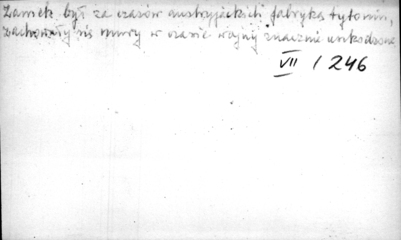 Zamek był za czasów austryjackich fabryką tytoniu,
zachowały się mury w czasie wojny znacznie uszkodzone
VII / 246